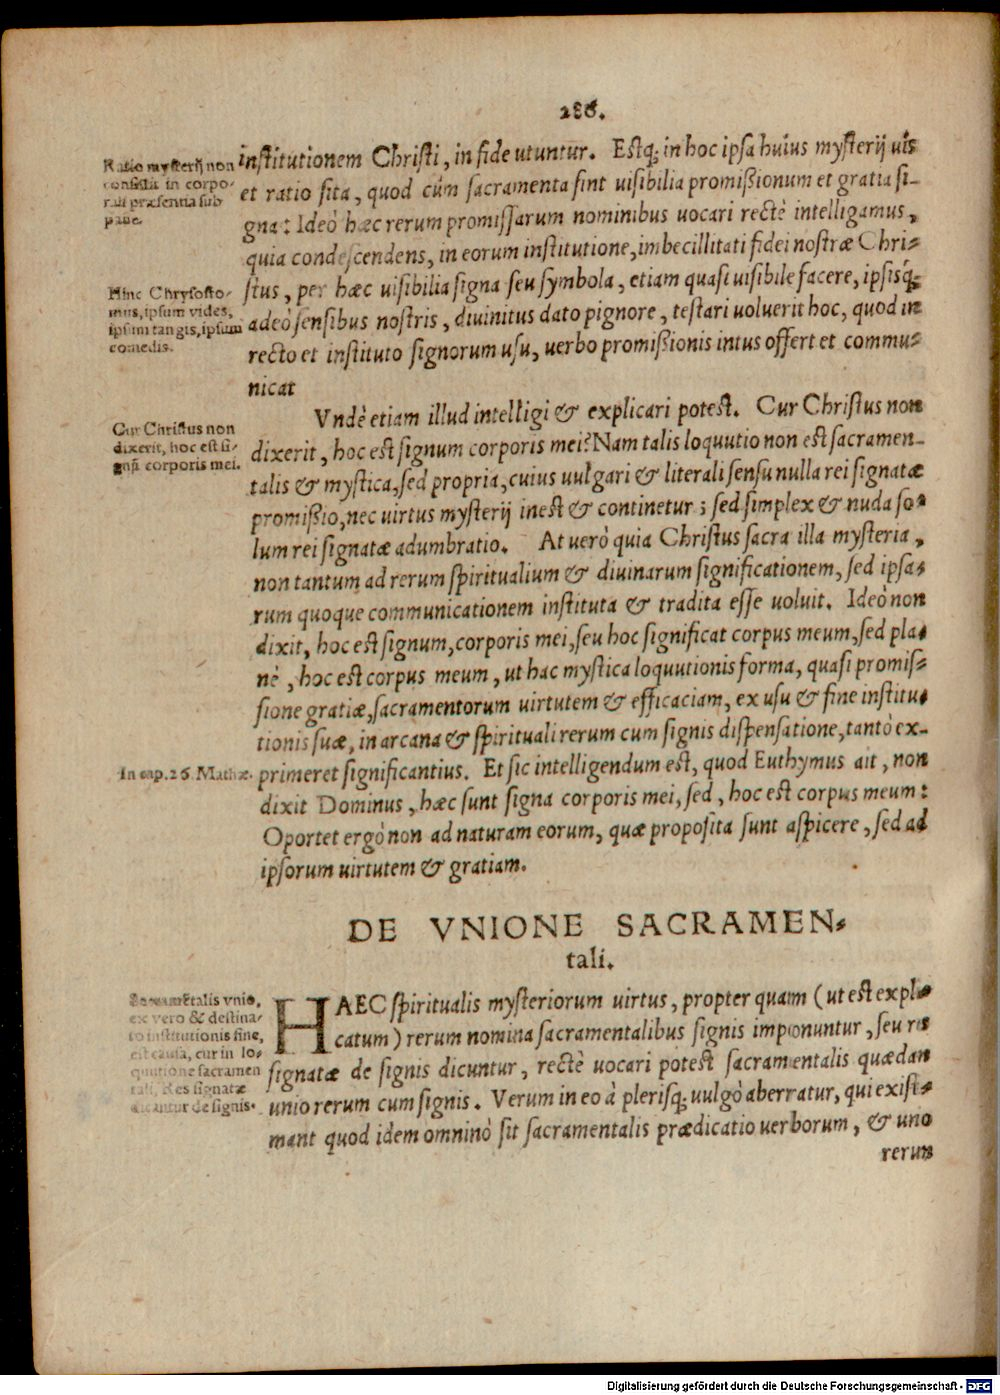 286.
institutionem Christi, in fide utuntur. Estq́; in hoc ipsa huius mysterij uis
et ratio sita, quod cùm sacramenta sint uisibilia promißionum et gratia si-
gna: Ideò hæc rerum promissarum nominibus uocari rectè intelligamus,
quia condescendens, in eorum institutione, imbecillitati fidei nostræ Chri-
stus, per hæc uisibilia signa seu symbola, etiam quasi uisibile facere, ipsisq́;
adeò sensibus nostris, diuinitus dato pignore, testari uoluerit hoc, quod in
recto et instituto signorum usu, uerbo promißionis intus offert et commu-
nicat
Ratio mysterij non
consistit in corpo-
rali præsentia sub
pane.
Hinc Chrysosto-
mus, ipsum vides,
ipsum tangis, ipsum
comedis.
Vndè etiam illud intelligi & explicari potest. Cur Christus non
dixerit, hoc est signum corporis mei? Nam talis loquutio non est sacramen-
talis & mystica, sed propria, cuius uulgari & literali sensu nulla rei signatæ
promißio, nec uirtus mysterij inest & continetur; sed simplex & nuda so-
lum rei signatæ adumbratio. At uerò quia Christus sacra illa mysteria,
non tantum ad rerum spiritualium & diuinarum significationem, sed ipsa-
rum quoque communicationem instituta & tradita esse uoluit. Ideò non
dixit, hoc est signum, corporis mei, seu hoc significat corpus meum, sed pla-
nè, hoc est corpus meum, ut hac mystica loquutionis forma, quasi promis-
sione gratiæ, sacramentorum uirtutem & efficaciam, ex usu & fine institu-
tionis suæ, in arcana & spirituali rerum cum signis dispensatione, tantò ex-
primeret significantius. Et sic intelligendum est, quod Euthymus ait, non
dixit Dominus, hæc sunt signa corporis mei, sed, hoc est corpus meum:
Oportet ergò non ad naturam eorum, quæ proposita sunt aspicere, sed ad
ipsorum uirtutem & gratiam.
Cur Christus non
dixerit, hoc est si-
gnū corporis mei.
In cap. 26. Mathæ.
DE VNIONE SACRAMEN-
tali.
HAEC spiritualis mysteriorum uirtus, propter quam (ut est expli-
catum) rerum nomina sacramentalibus signis imponuntur, seu res
signatæ de signis dicuntur, rectè uocari potest sacramentalis quædam
unio rerum cum signis. Verum in eo à plerisq́; uulgò aberratur, qui existi-
mant quod idem omninò sit sacramentalis prædicatio uerborum, & uno
rerum
Sacramētalis vnio,
ex vero & destina-
to institutionis fine,
est causa, cur in lo-
quutione sacramen
tali, Res signatæ
dicantur de signis.
Digitalisierung gefördert durch die Deutsche Forschungsgemeinschaft - DFG